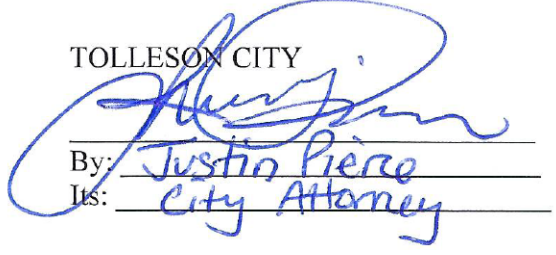 TOLLESON CITY
By: Justin Pierce
Its: City Attorney